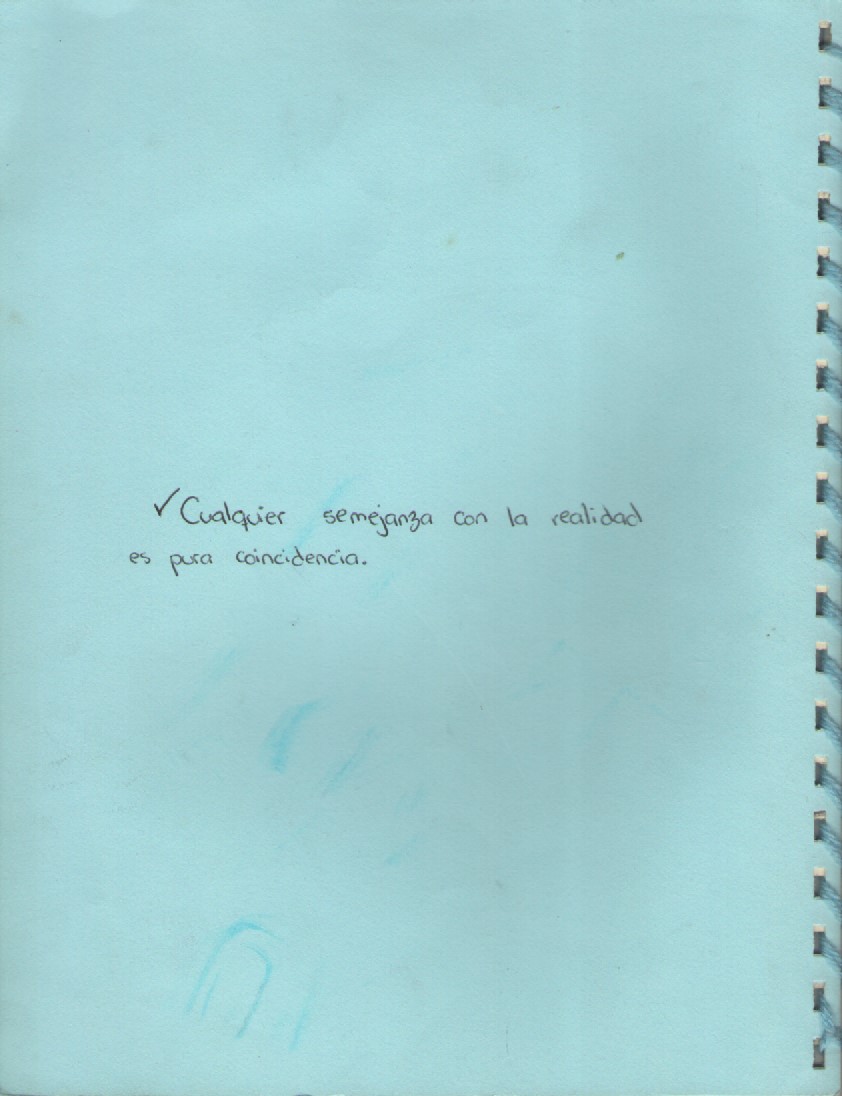 ✓Cualquier semejanza con la realidad
es pura coincidencia.